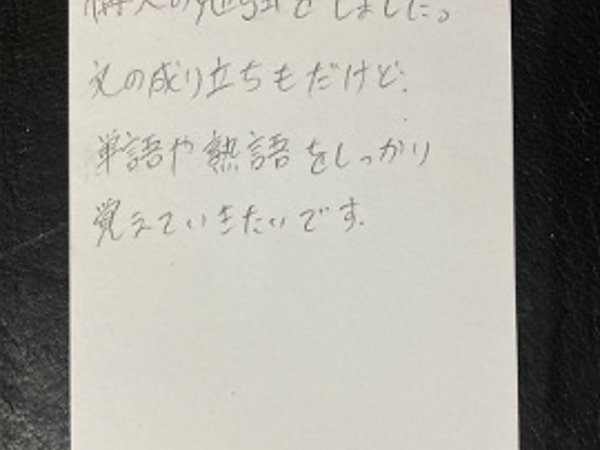 構文の勉強をしました。
文の成り立ちもだけど、
単語や熟語をしっかり
覚えていきたいです.